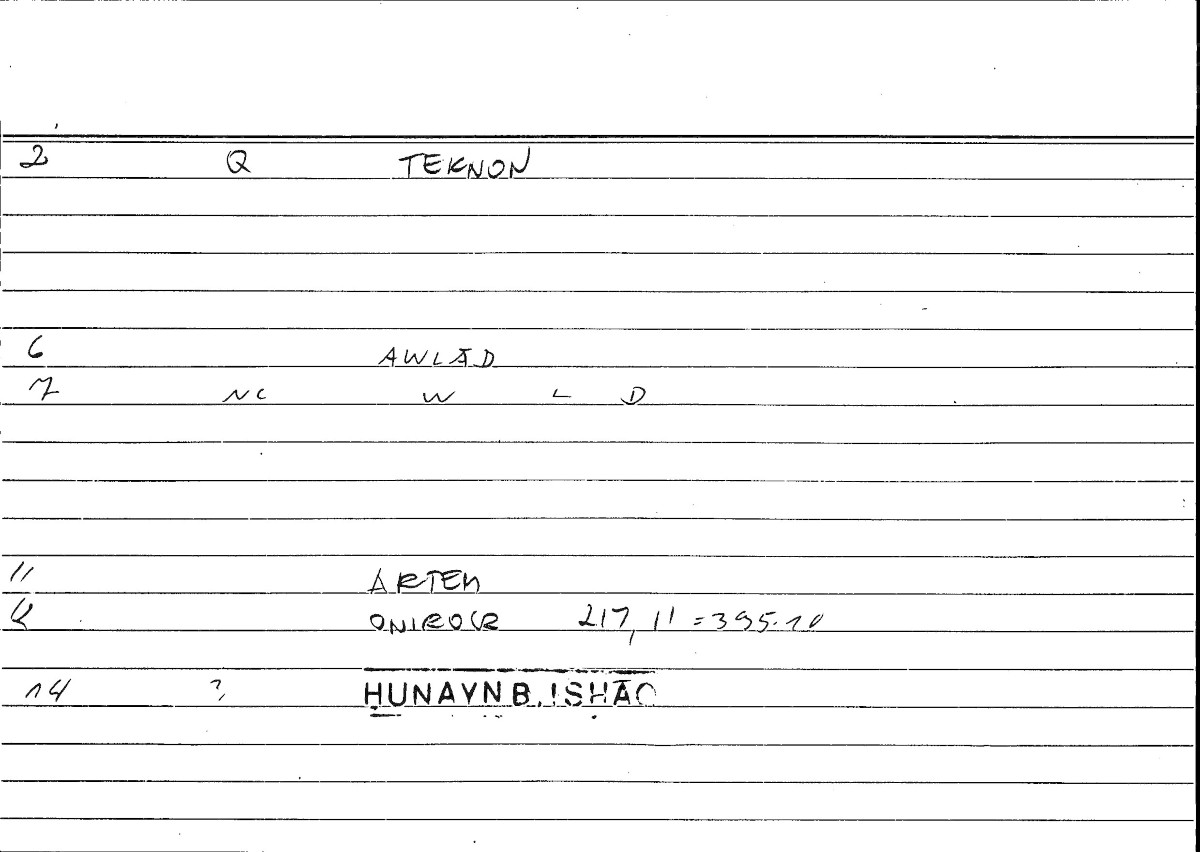 2 Q TEKNON
6 AWLĀD
7 NC W L D
11 ARTEM
12 ONIROCR 217, 11 = 395.10
14 ? ḤUNAYN B. ISḤĀQ